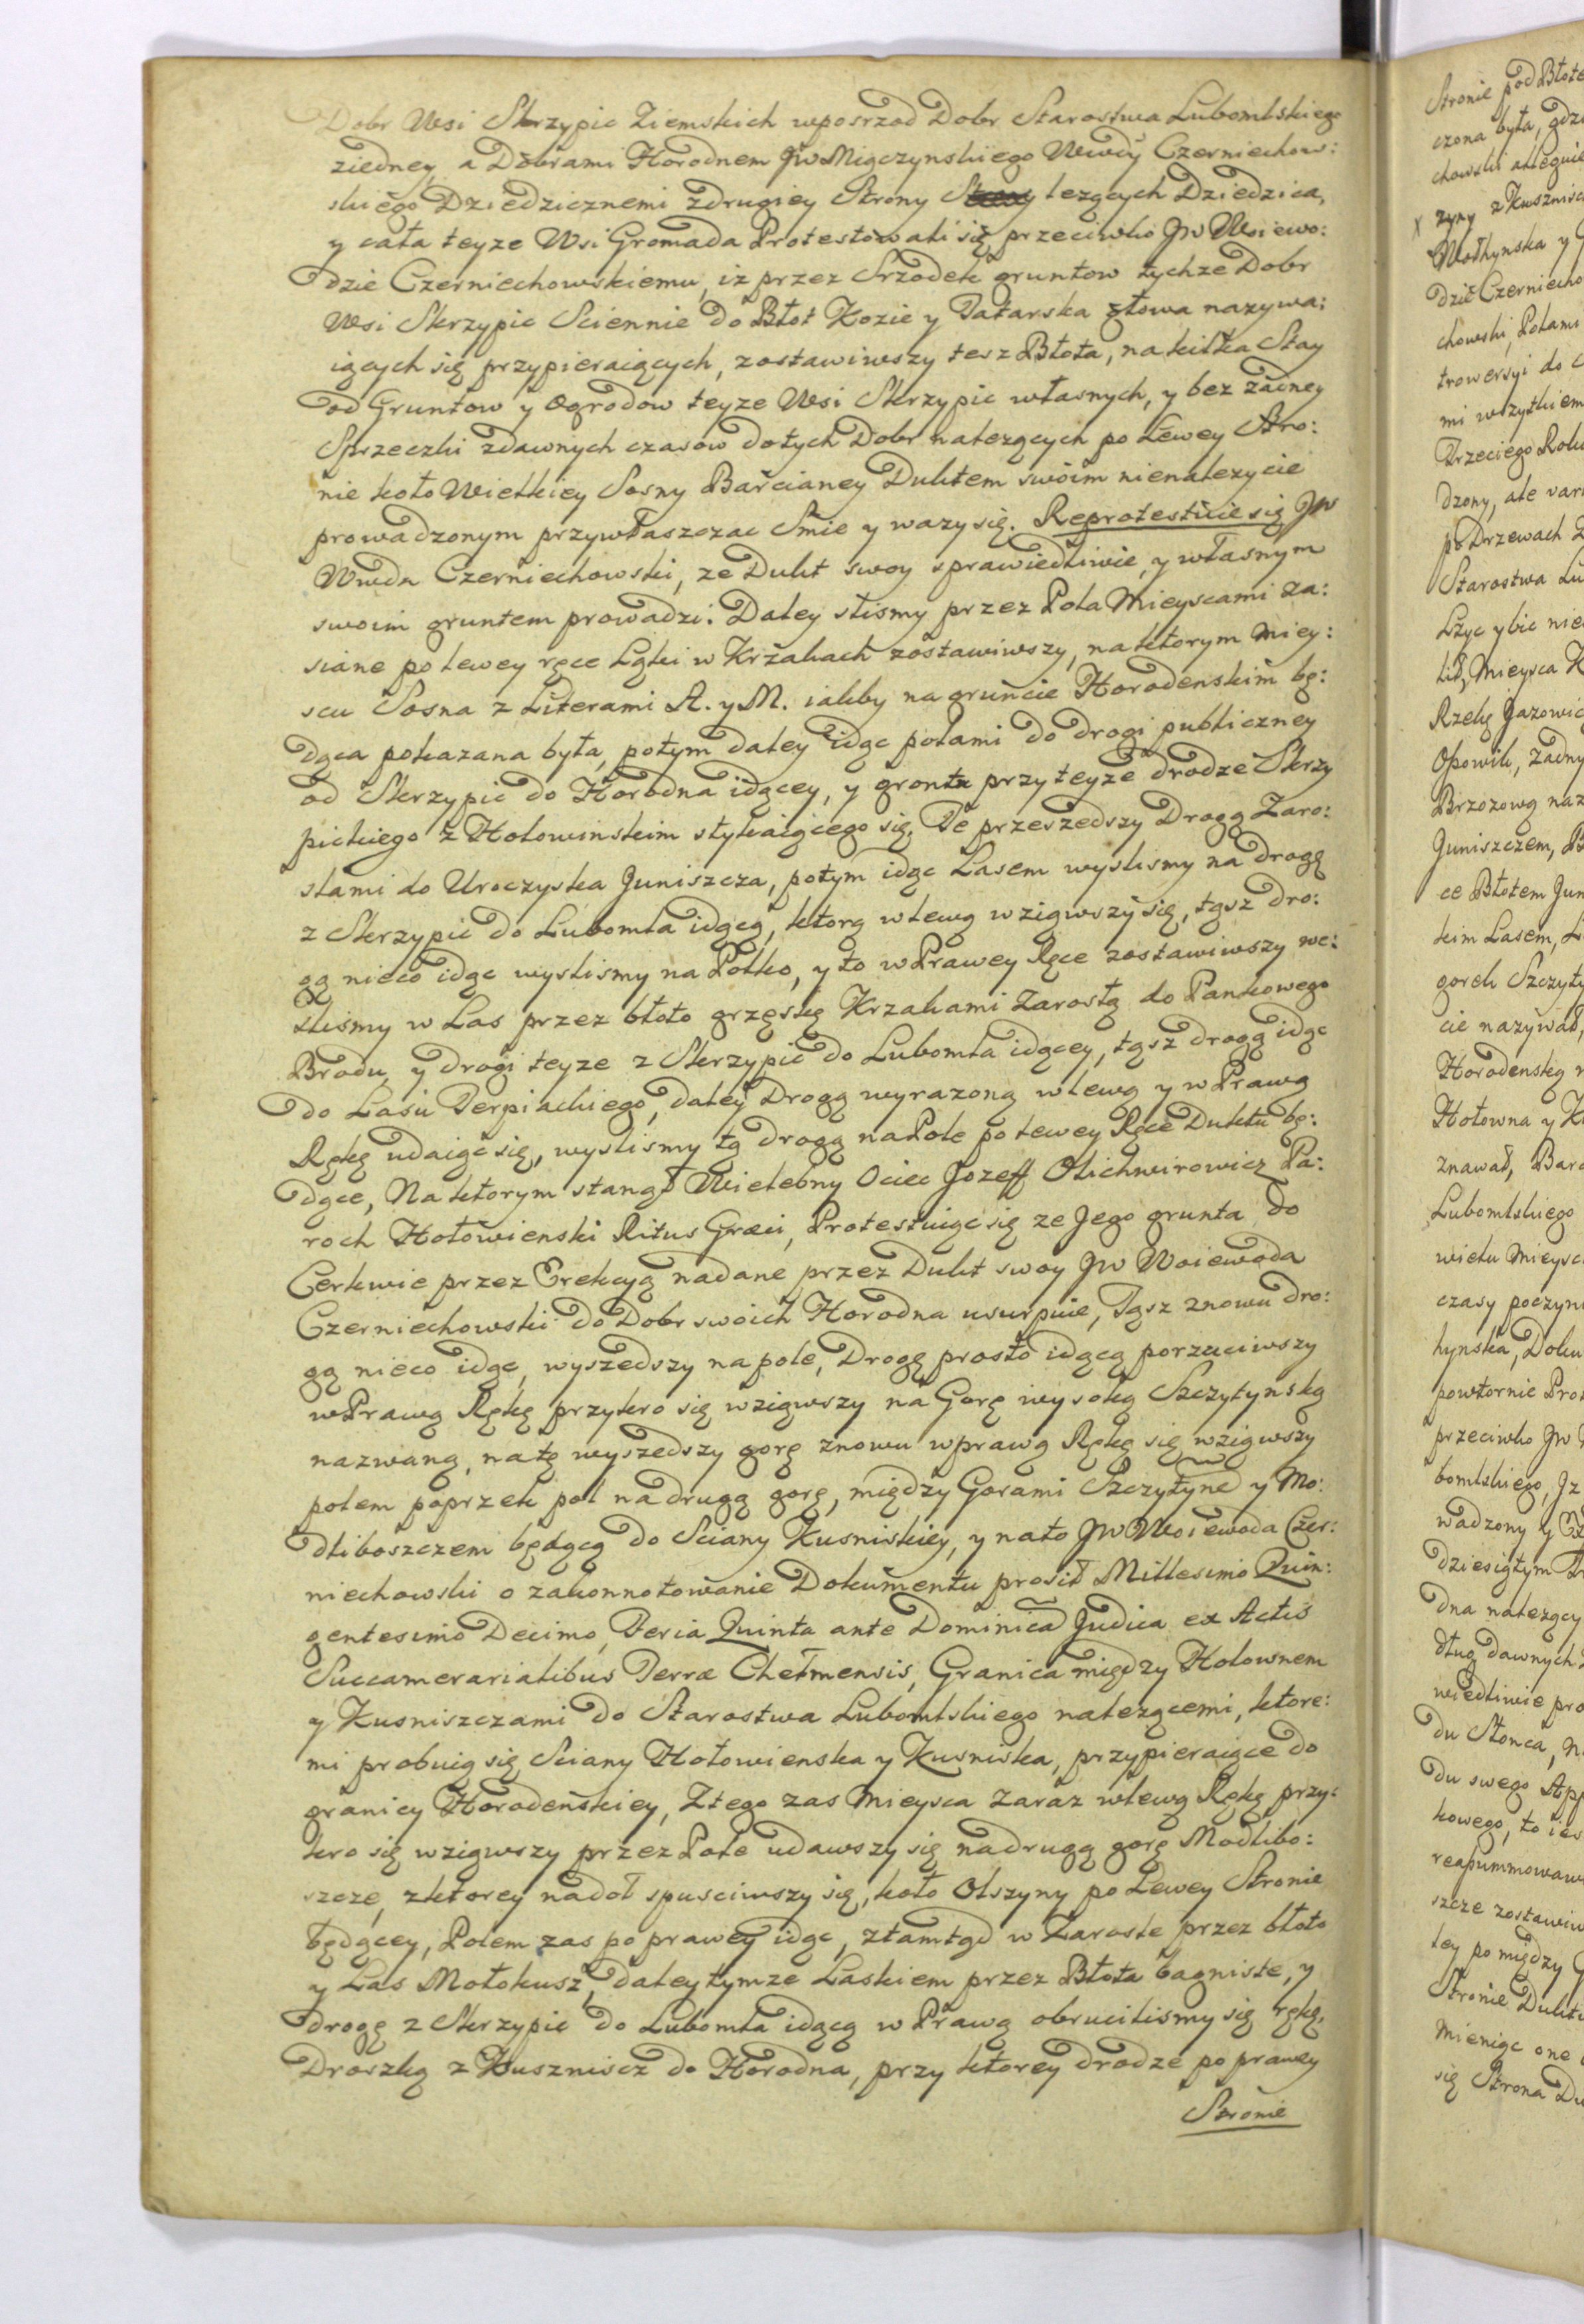 Dobr Wsi Skrzypic Ziemskich wposrzod Dobr Starostwa Lubomlskiego
ziedney a Dobrami Horodnem JW Miączynskiego Wwdy Czerniechow:
skiego Dziedzicznemi zdrugiey Strony lezących Dziedzica,
y cała teyze Wsi Gromada Protestowali się przeciwko JW Woiewo:
dzie Czerniechowskiemu, iz przez Srzodek gruntow tychze Dobr
Wsi Skrzypic Sciennie do Błot Kozie y Tatarska głowa nazywa:
iących się przypieraiących, zostawiwszy tesz Błota, na kilka Stay
od Gruntow y Ogrodow teyze Wsi Skrzypic własnych, y bez zadney
Sprzeczki zdawnych czasow dotych Dobr nalezących po Lewey Stro:
nie koło Wielkiey Sosny Barcianey Duktem swoim nienalezycie
prowadzonym przywłaszczac Smie y wazy się. Reprotestuie się JW
Wwda Czerniechowski, ze Dukt swoy sprawiedliwie, y własnym
swoim gruntem prowadzi. Daley slismy przez Pola Mieyscami za:
siane po lewey ręce Ląki w Krzakach zostawiwszy, na ktorym miey:
scu Sosna z Literami A. y M. iakby na gruncie Horodenskim bę:
dąca pokazana była, potym daley idąc polami do drogi publiczney
od Skrzypic do Horodna idącey, y grontu przy teyze drodze Skrzy
pickiego z Hołowinskim stykaiącego się. Te przeszedszy Drogą Zaro:
slami do Uroczyska Juniszcza, potym idąc Lasem wyslismy na drogę
z Skrzypic do Lubomla idącą, ktorą wlewą wziąwszy się, tąsz dro:
gą nieco idąc wyslismy na Polko, y to w Prawey Ręce zostawiwszy we:
slismy w Las przez błoto grzęskę Krzakami Zarosłą do Pankowego
Brodu, y drogi teyze z Skrzypic do Lubomla idącey, tąsz drogą idąc
do Lasu Terpiackiego, daley Drogą wyrazoną wlewą y w Prawą
Rękę udaiąc się, wyslismy tą drogą na Pole po lewey Ręce Duktu bę:
dące, Na ktorym stanął Wielebny Ociec Jozeff Olichwirowicz Pa:
roch Hołowienski Ritus Græci, Protestuiąc się ze Jego grunta do
Cerkwie przez Erekcyą nadane przez Dukt swoy JW Woiewoda
Czerniechowski do Dobr swoich Horodna usurpuie, Tąsz znowu dro:
gą nieco idąc, wyszedszy na pole, Drogę prosto idącą porzuciwszy
w Prawą Rękę przykro się wziąwszy na Gorę wysoką Szczytynską
nazwaną, na tę wyszedszy gorę znowu wprawą Rękę się wziąwszy
polem poprzek pol na drugą gorę, między Gorami Szczytyne y Mo:
dliboszczem będącą do Sciany Kusniskiey, y nato JW Woiewoda Czer:
niechowski o zakonnotowanie Dokumentu prosił Millesimo Quin:
gentesimo Decimo, Feria Quinta ante Dominica Judica ex Actis
Succamerarialibus Terræ Chełmensis, Granica między Holownem
y Kusniszczami do Starostwa Lubomlskiego nalezącemi, ktore:
mi probuią się Sciany Hołowienska y Kusniska, przypieraiące do
granicy Horodenskiey, Ztego zas Mieysca Zaraz wlewą Rękę przy:
kro się wziąwszy przez Pole udawszy się na drugą gorę Modlibo:
szcze, zktorey nadoł spusciwszy się, koło Olszyny po Lewey Stronie
będącey, Polem zas po prawey idąc, ztamtąd w Zarosle przez błoto
y Las Mołokusz, daley tymze Laskiem przez Błota bagniste, y
drogę z Skrzypic do Lubomla idącą w Prawą obrucilismy się rękę,
Droszką z Kuszniscz do Horodna, przy ktorey drodze po prawey
Stronie
Stronie pod
czona była,
chowski
zyny
Wołhynska y
dzie
chowski, Polami
trowersyi do
mi
Trzeciego
dzony, ale
po Drzewach
Starostwa
Mieysca
Rzekę
Opowik,
Brzozową
Juniszczem,
ce Błotem
kim Lasem,
gorek
cie nazywał,
Horodenską
Hołowna y
znawał,
Lubomlskiego
wielu
czasy
hynska,
powtornie
przeciwko JW
bomlskiego, Iz
wadzony y
dziesiątym
dna
dług dawnych
wiedliwie
du Słonca,
du swego
kowego, to
szcze
ley po między
Stronie
Mieniąc one
się Strona